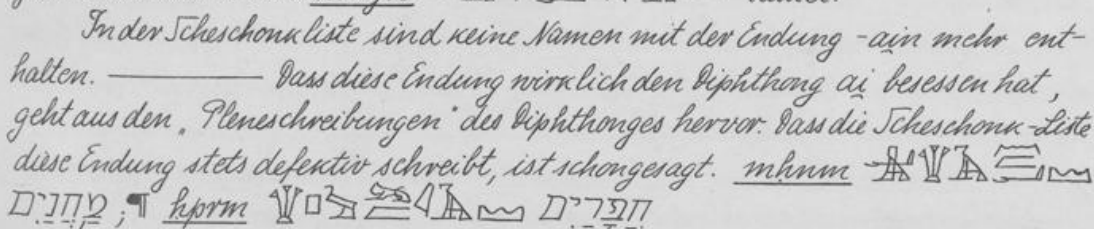 In der Scheschonkliste sind keine Namen mit der Endung -ai̯n mehr ent-
halten. ———— Dass diese Endung wirklich den Diphthong ai̯ besessen hat,
geht aus den „Pleneschreibungen" des Diphthonges hervor. Dass die Scheschonk-Liste
diese Endung stets defektiv schreibt, ist schon gesagt. mḥnm
מַחֲנַיִם ; ¶ ḥprm חפרים